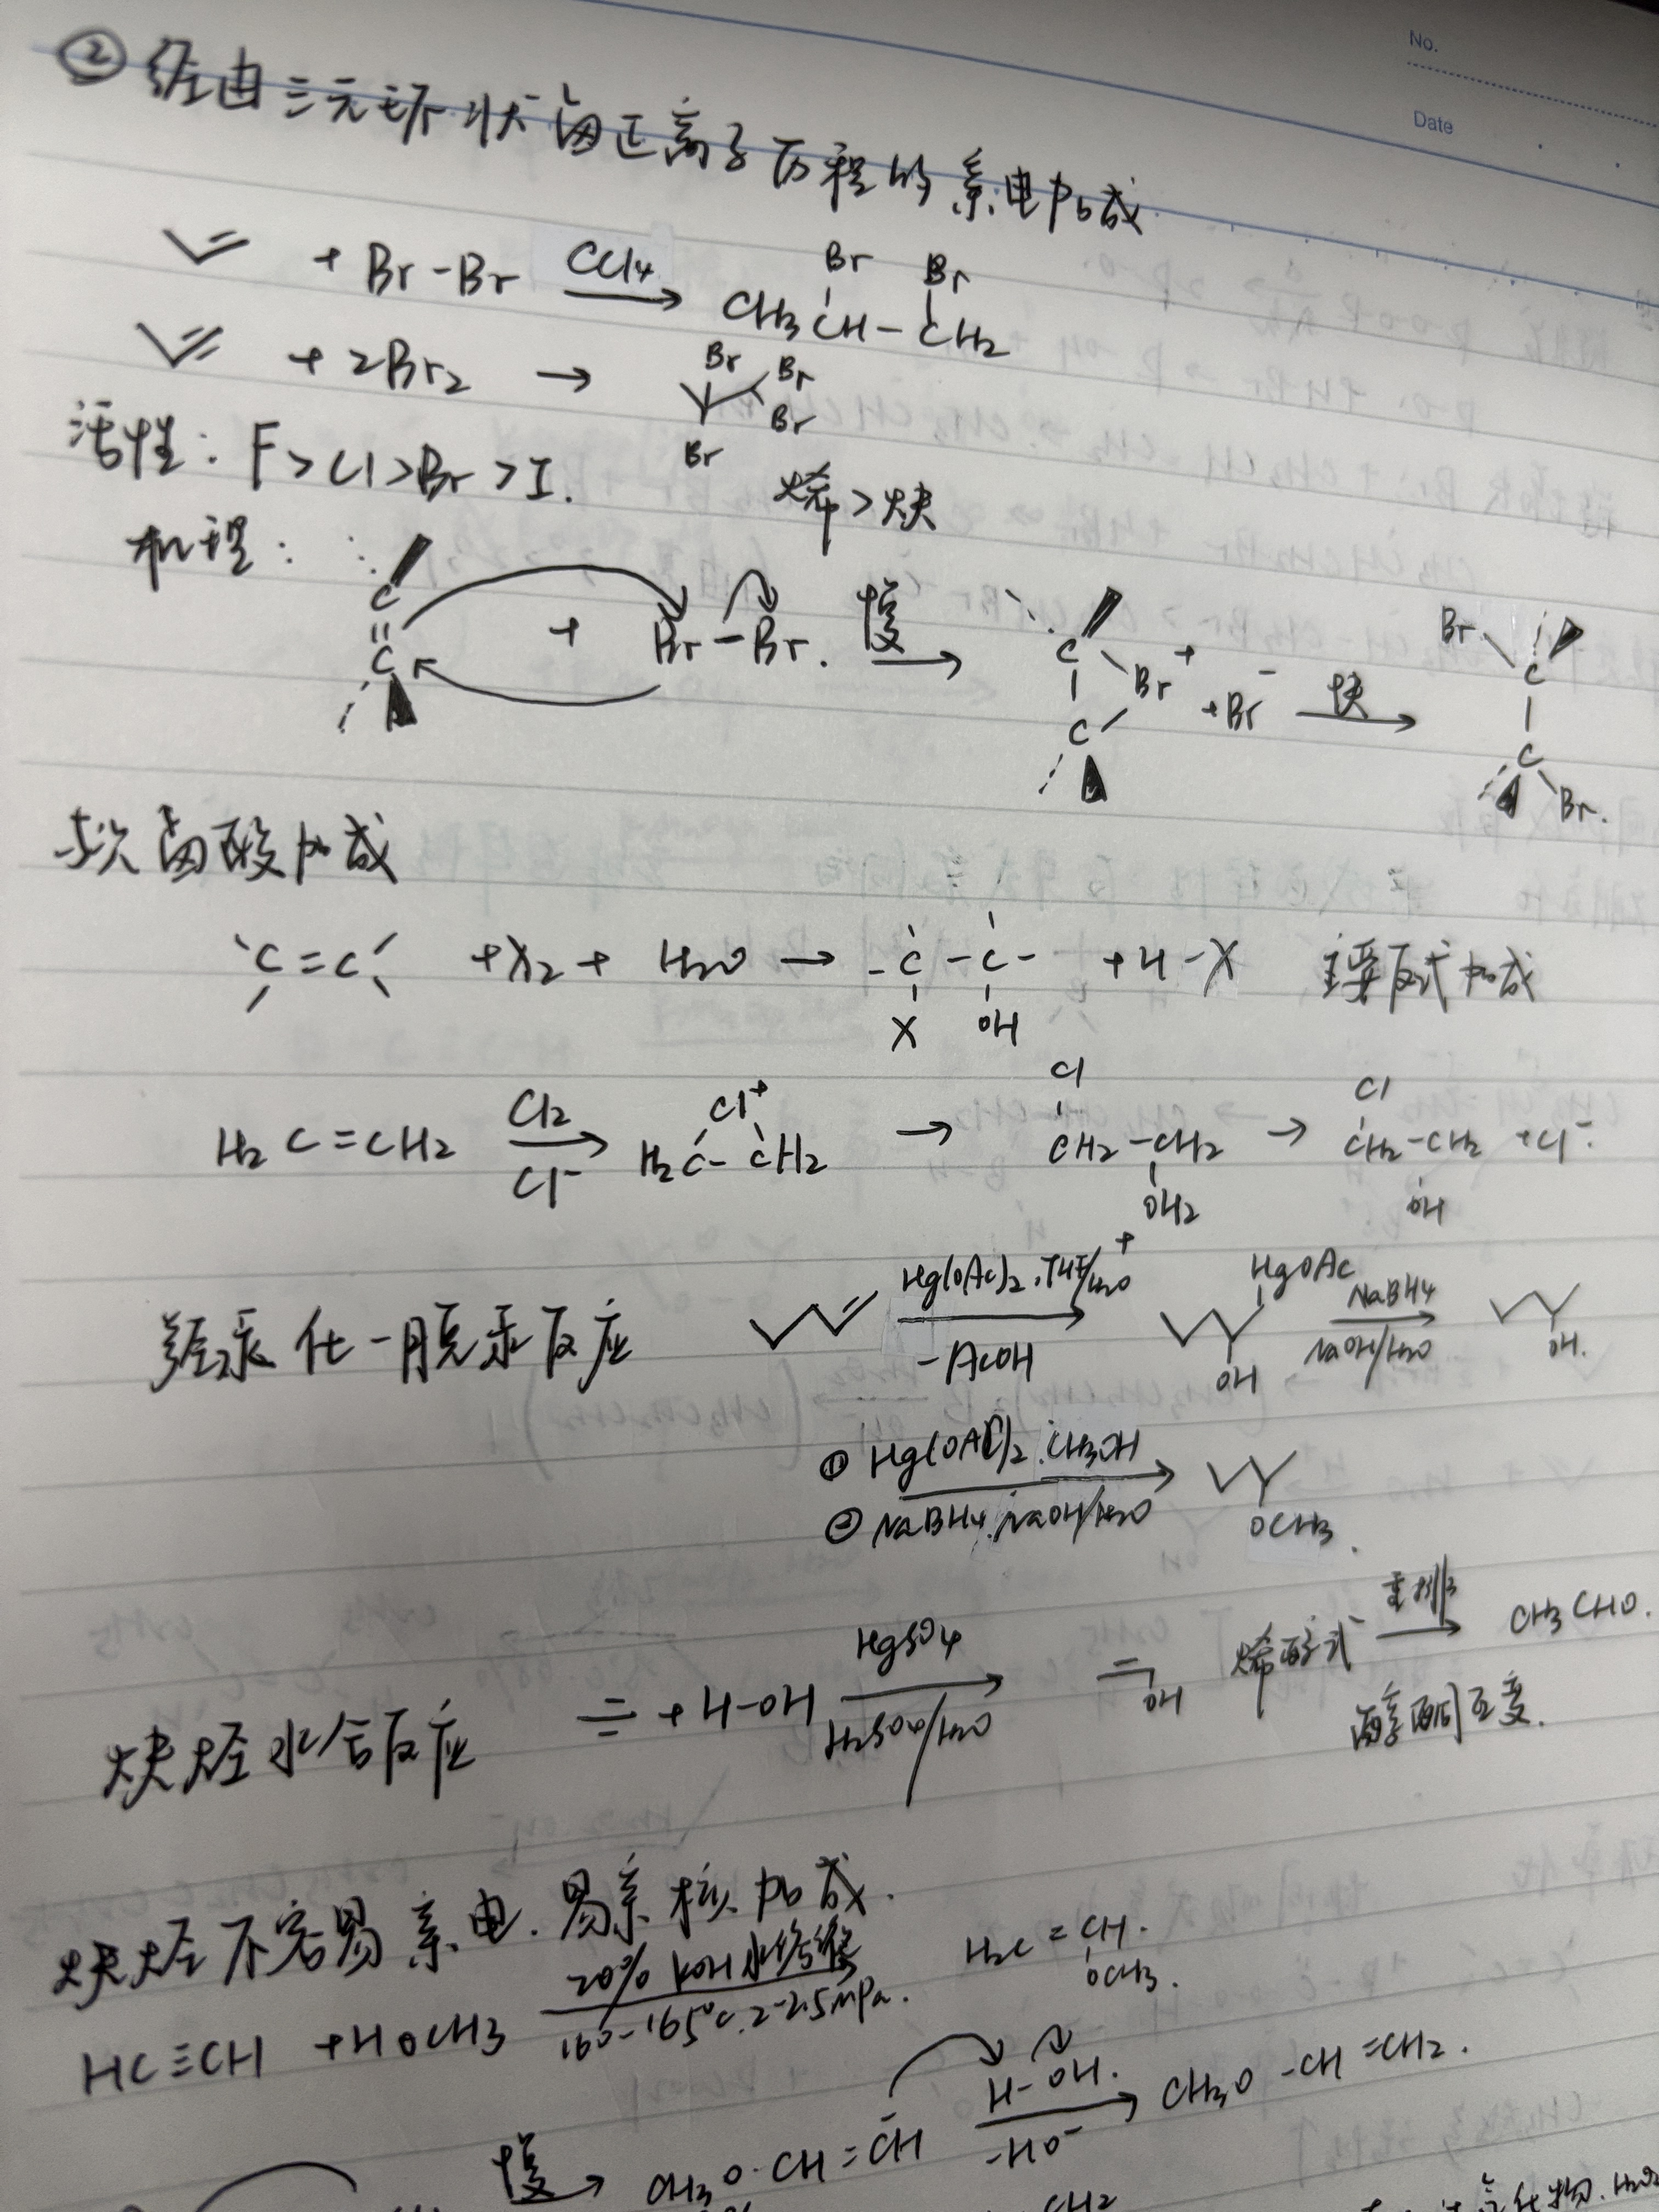 No.
Date
② 经由三元环状卤正离子历程的亲电加成
+ Br-Br CCl4 → CH3CH-CH2 Br Br
+ 2Br2 → Br Br Br Br
活性: F>Cl>Br>I. 烯>炔
机理: C=C + Br-Br. 慢 → C C Br+ +Br- 快 → Br C C Br.
与次卤酸加成
C=C +X2 + H2O → -C-C- X OH +H-X 主要反式加成
H2C=CH2 Cl2 Cl- → H2C-CH2 Cl+ → Cl CH2-CH2 OH2 + → Cl CH2-CH2 OH +Cl-.
羟汞化-脱汞反应 Hg(OAc)2.THF/H2O -AcOH → HgOAc OH NaBH4 NaOH/H2O → OH.
① Hg(OAc)2.CH3OH
② NaBH4.NaOH/H2O → OCH3.
炔烃水合反应 ≡ + H-OH HgSO4 H2SO4/H2O → OH 烯醇式 重排 → CH3CHO.
酮互变.
炔烃不容易亲电.易亲核加成.
HC≡CH +HOCH3 20% KOH水溶液 160-165℃.2-2.5MPa. H2C=CH. OCH3.
慢 → CH3O-CH=CH- H-OH. -HO- → CH3O-CH=CH2.
CH2
化物.H2O2